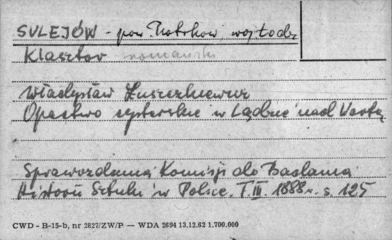 SULEJÓW - pow. Piotrków woj. Łódz
Klasztor romański
Władysław Łuszczkiewicz
Opactwo cysterskie w Lądzie nad Wartą
Sprawozdania Komisji do Badania
Historii Sztuki w Polsce. T. III. 1888 r. s. 125
CWD - B-15-b, nr 2827/ZW/P — WDA 2694 13.12.62 1.700.000